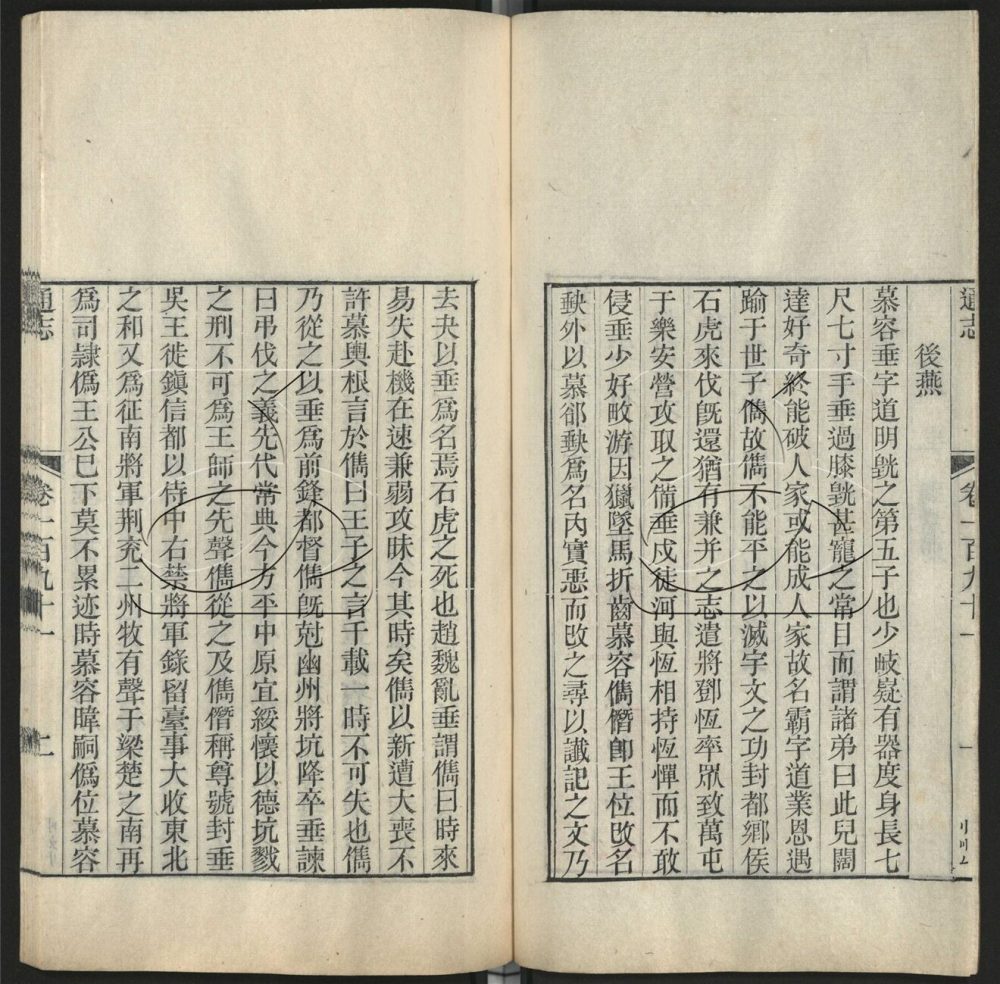 通志
卷一百九十一
一
後燕
慕容垂字道明皝之第五子也少岐嶷有器度身長七
尺七寸手垂過膝皝甚寵之常目而謂諸弟曰此兒闊
達好奇終能破人家或能成人家故名霸字道業恩遇
踰于世子儁故儁不能平之以滅宇文之功封都鄉侯
石虎來伐旣還猶有兼并之志遣將鄧恆率眾致萬屯
于樂安營攻取之備垂戍徒河與恆相持恆憚而不敢
侵垂少好畋游因獵墜馬折齒慕容儁僭卽王位改名
𡙇外以慕郤𡙇爲名內實惡而改之尋以讖記之文乃
去夬以垂爲名焉石虎之死也趙魏亂垂謂儁曰時來
易失赴機在速兼弱攻昧今其時矣儁以新遭大喪不
許慕輿根言於儁曰王子之言千載一時不可失也儁
乃從之以垂爲前鋒都督儁旣尅幽州將坑降卒垂諫
曰弔伐之義先代常典今方平中原宜綏懷以德坑戮
之刑不可爲王師之先聲儁從之及儁僭稱尊號封垂
吳王徙鎭信都以侍中右禁將軍錄留臺事大收東北
之和又爲征南將軍荆兖二州牧有聲于梁楚之南再
爲司隷僞王公已下莫不累迹時慕容暐嗣僞位慕容
通志
卷一百九十一
二